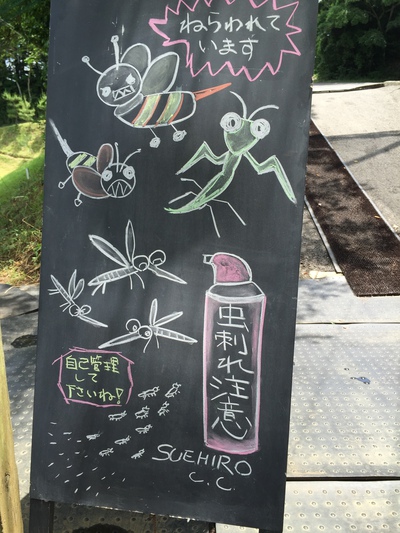 ねらわれて
います
虫刺れ注意
自己管理
して
下さいね!
SUEHIRO
C.C.